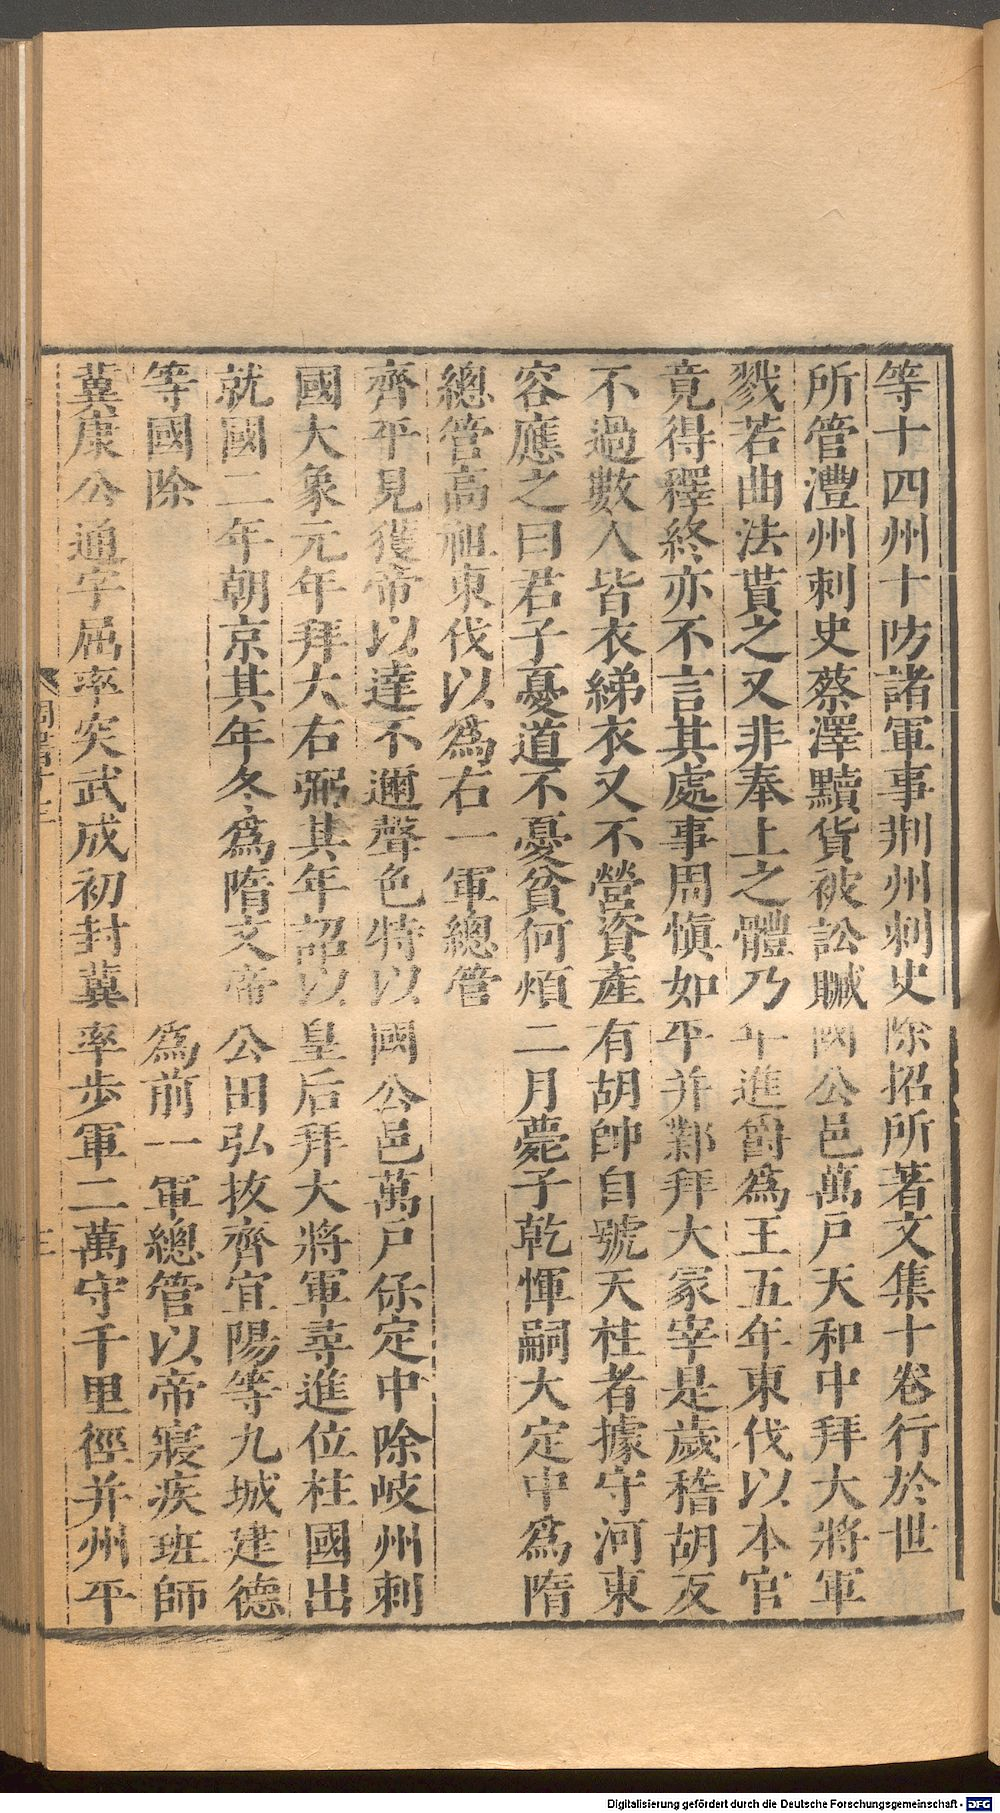 等十四州十防諸軍事荆州刺史除招所著文集十卷行於世
所管澧州刺史蔡澤黷貨被訟贓國公邑萬戶天和中拜大將軍
戮若曲法貰之又非奉上之體乃年進爵爲王五年東伐以本官
竟得釋終亦不言其處事周愼如平并鄴拜大冢宰是歲稽胡反
不過數人皆衣綈衣又不營資產有胡帥自號天柱者據守河東
容應之曰君子憂道不憂貧何煩二月薨子乾惲嗣大定中爲隋
總管高祖東伐以爲右一軍總管
齊平見獲帝以達不邇聲色特以國公邑萬戶保定中除岐州刺
國大象元年拜大右弼其年詔以皇后拜大將軍尋進位柱國出
就國二年朝京其年冬爲隋文帝公田弘拔齊宜陽等九城建德
等國除爲前一軍總管以帝寢疾班師
冀康公通字屈率突武成初封冀率步軍二萬守千里徑并州平
周書十三
三
Digitalisierung gefördert durch die Deutsche Forschungsgemeinschaft - DFG